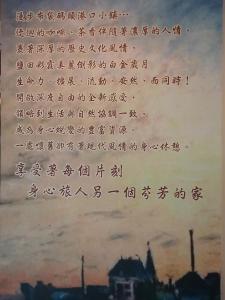 漫步布袋碼頭港口小鎮…
悠迴的咖啡、茶香伴隨著濃厚的人情，
蘊含深厚的歷史文化風情。
鹽田彩霞美麗倒影的白金歲月
生命力、擴展、流動、安然、而同時！
開啟深度自由的全新感受。
領略到生活與自然協調一致，
成為身心蛻變的豐富資源。
一處懷舊卻有著現代風情的身心休憩。
享受著每個片刻
身心旅人另一個芬芳的家